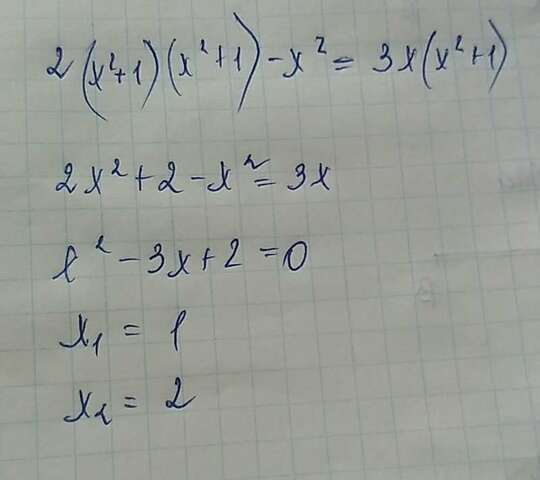 2(x²+1)(x²+1)-x²= 3x(x²+1)
2x²+2-x²= 3x
x²-3x+2=0
x₁ = 1
x₂ = 2